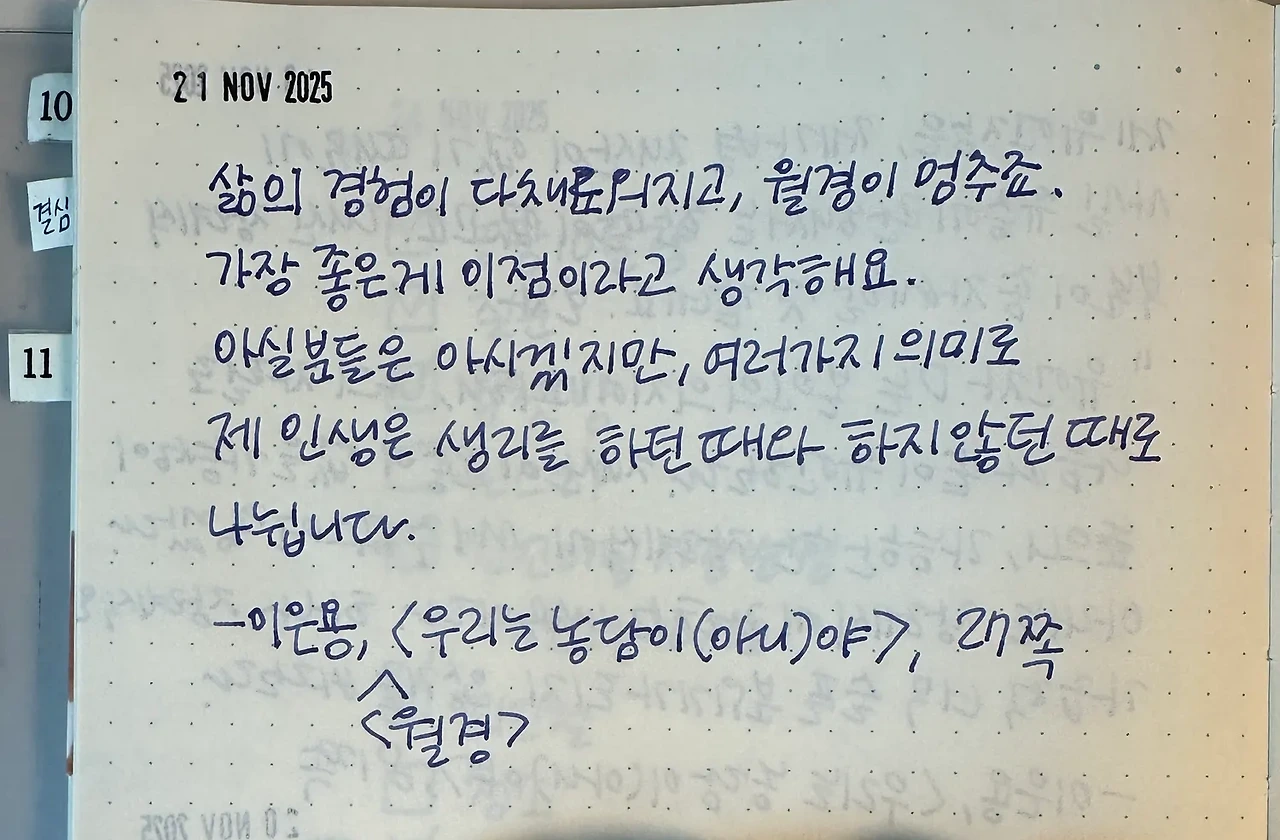 21 NOV 2025
10
결심
11
삶의 경험이 다채로워지고, 월경이 멈추죠.
가장 좋은게 이점이라고 생각해요.
아실분들은 아시겠지만, 여러가지 의미로
제 인생은 생리를 하던 때와 하지않던 때로
나뉩니다.
-이은용, <우리는 농담이(아니)야>, 27쪽
<월경>